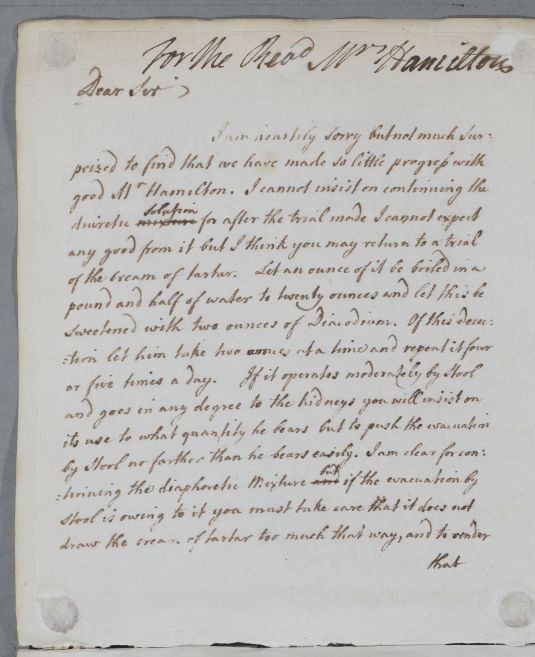 For the Revd Mr. Hamilton
Dear Sir
I am heartily sorry but not much Sur-
prized to find that we have made so little progress with
good Mr Hamilton. I cannot insist on continuing the
diuretic mixture solution for after the trial made I cannot expect
any good from it but I think you may return to a trial
of the Cream of tartar. Let an ounce of it be boiled in a
pound and half of water to twenty ounces and let this be
sweetened with two ounces of Diacodium. Of this decoc-
-tion let him take two ounces at a time and repeat it four
or five times a day. If it operates moderately by Stool
and goes in any degree to the kidneys you will insist on
its use to what quantity he bears but to push the evacuation
by Stool no farther than he bears easily. I am clear for con:
-tinuing the diaphoretic Mixture and but if the evacuation by
Stool is owing to it you must take care that it does not
draw the cream of tartar too much that way, and to render
that